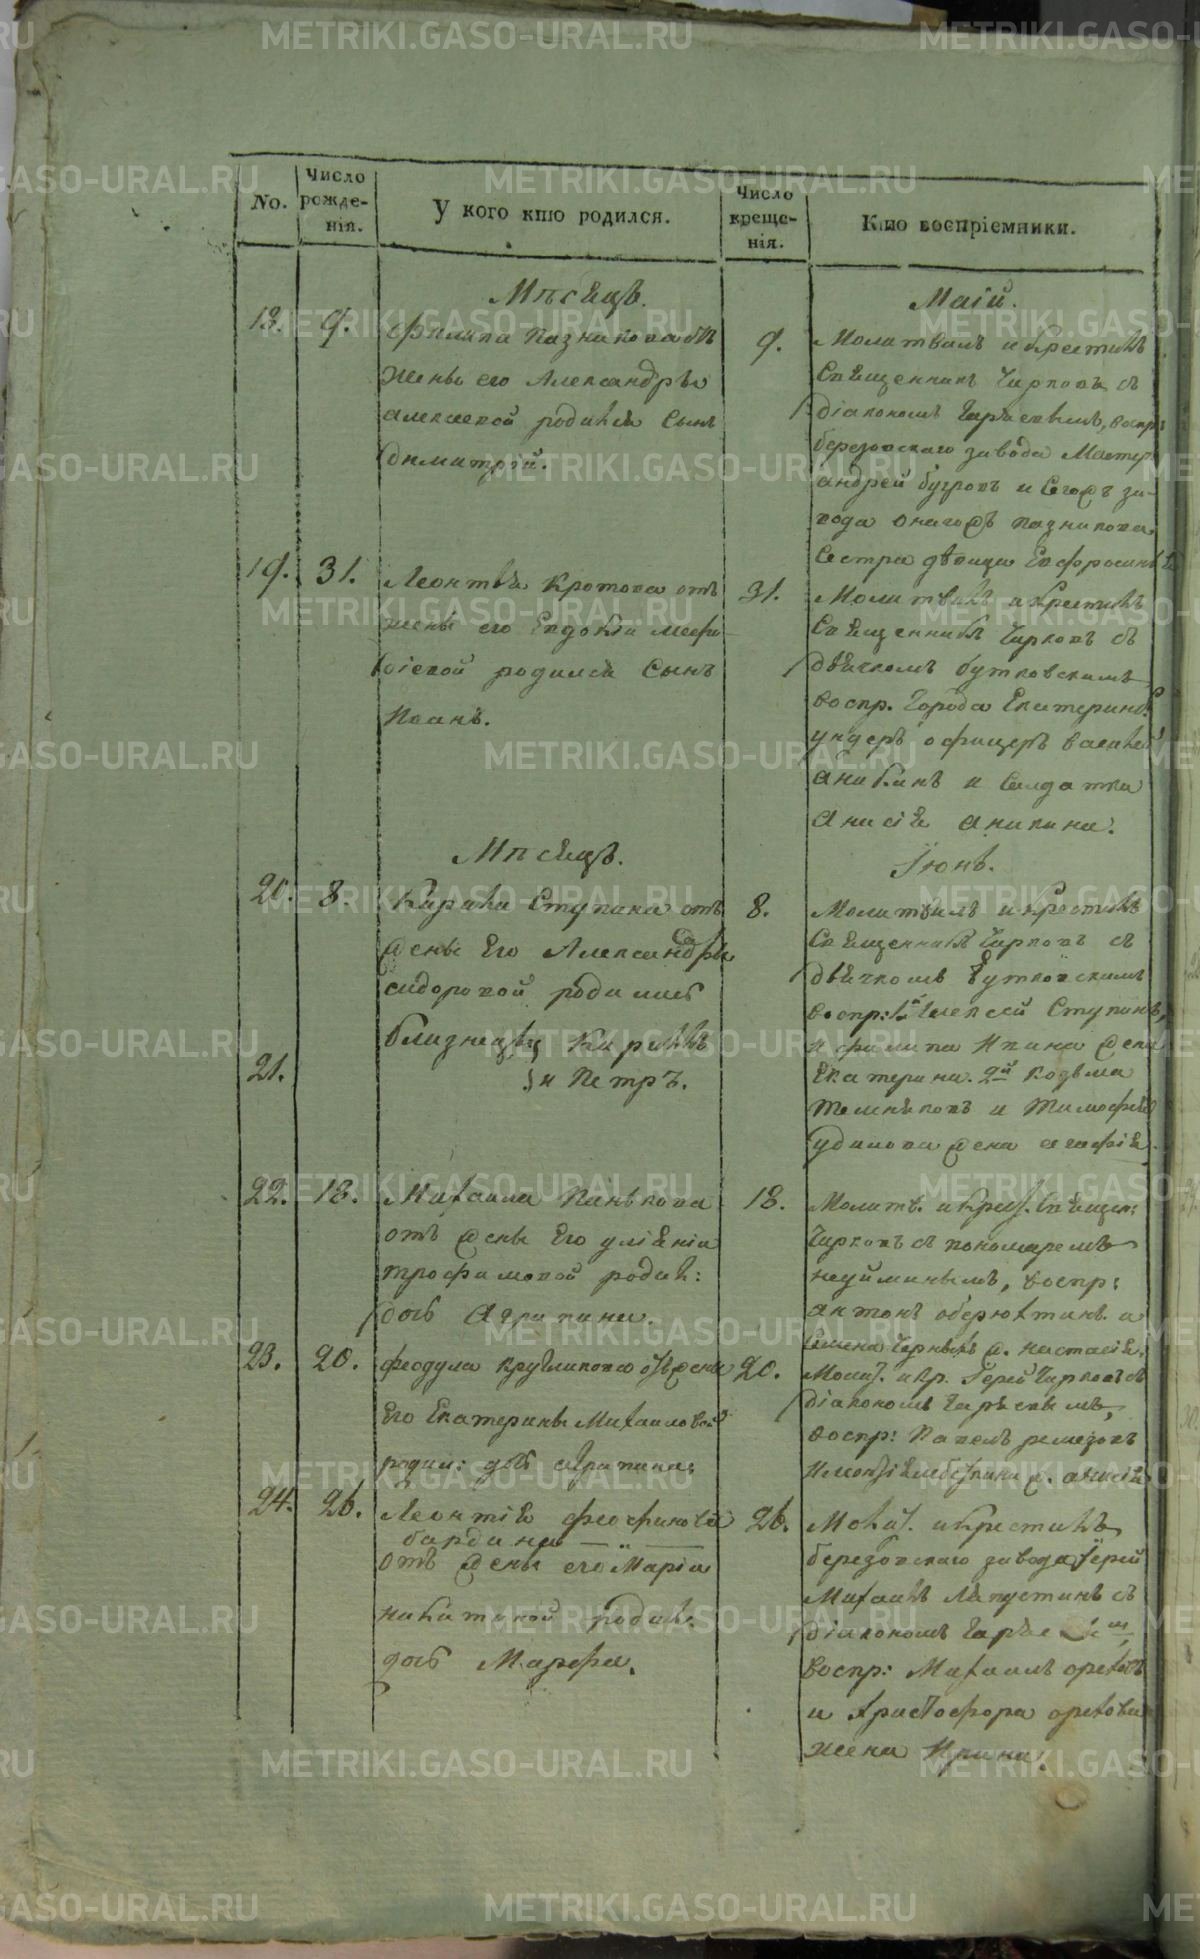 No.
Число рожде-нія.
У кого кто родился.
Число креще-нія.
Кто воспріемники.
Мѣсяцъ.
Маій.
18.
9.
Филипа Казникова отъ
жены его Александры
алексѣевой родился сынъ
Димитрій.
9.
Молитвилъ и крестилъ
Священникъ Чирковъ съ
діакономъ
воспр:
березовскаго завода Мастер
андрей бугровъ и сегожъ за-
вода онагожъ казникова
сестра дѣвица Евфросинія
19.
31.
Леонтія Кротова отъ
жены его Евдокіи меѳо-
діевой родился сынъ
Иванъ.
31.
Молитвилъ и крестилъ
Священникъ Чирковъ съ
дьячкомъ бутковскимъ
воспр. города Екатеринб:
ундеръ офицеръ василей
аникинъ и салдатка
анисія аникина.
Мѣсяцъ.
Іюнь.
20.
8.
Кирила Ступина отъ
жены Его Александры
сидоровой родились
близнецы Кирилъ
21.
и Петръ.
8.
Молитвилъ и крестилъ
Священникъ Чирковъ съ
дьячкомъ Бутковскимъ
воспр: 1й Алексей Ступинъ,
и филипа Ивина жена
Екатерина. 2й Козьма
и Тимофея
жена агафія.
22.
18.
Михаила Панькова
отъ жены Его уліяніи
трофимовой родил:
дочь Агрипина.
18.
Молитв. и крест. Священ:
Чирковъ съ пономаремъ
неуйминымъ, воспр:
антонъ оберюхтинъ и
семена Черныхъ ж. настасія.
23.
20.
феодула Кругликова отъ жены
Его Екатерины Михаиловой
родил: дочь агрипина;
20.
Молит. и кр. Іерей Чирковъ съ
діакономъ
воспр: Павелъ ремезовъ
ж. анисія
24.
26.
Леонтія феофилова
бардина
отъ жены его Маріи
никитиной родил:
дочь Марфа.
26.
Молит. и крестилъ
березовскаго завода Іерей
Михаилъ Лапустинъ съ
діакономъ
воспр: Михаилъ ореховъ
и христофора орехова
жена Ирина.
METRIKI.GASO-URAL.RU